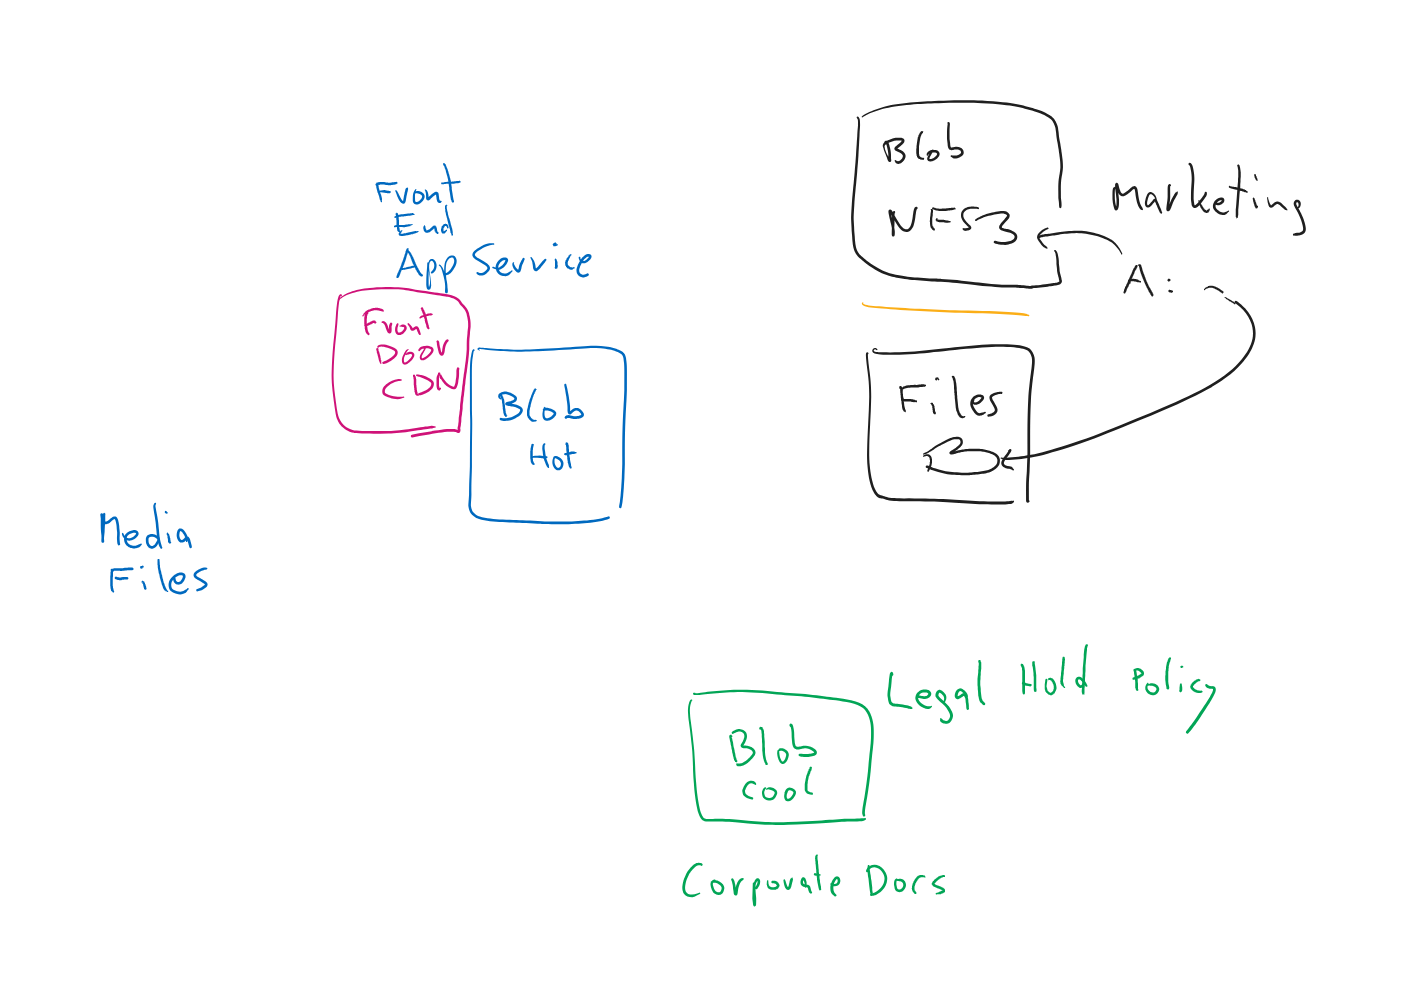 Front
End
App Service
Front
Door
CDN
Blob
Hot
Media
Files
Blob
NFS3
Marketing
A:
Files
Legal Hold Policy
Blob
cool
Corporate Docs